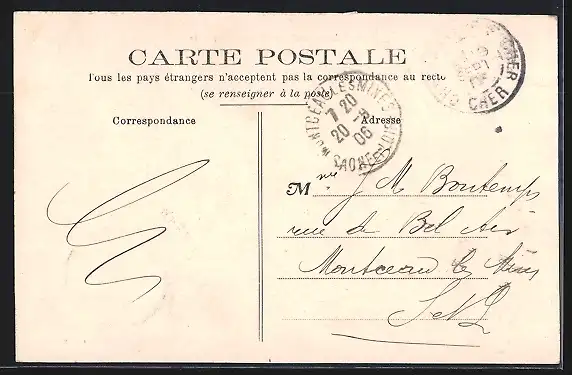 CARTE POSTALE
Tous les pays étrangers n'acceptent pas la correspondance au recto
(se renseigner à la poste)
Correspondance
Adresse
MONTCEAU-LES-MINES
7 20
20 - 8
06
SAONE-ET-L
CHER
CHER
Mme J M Bontemps
rue de Bel Air
Montceau les Mines
S et L